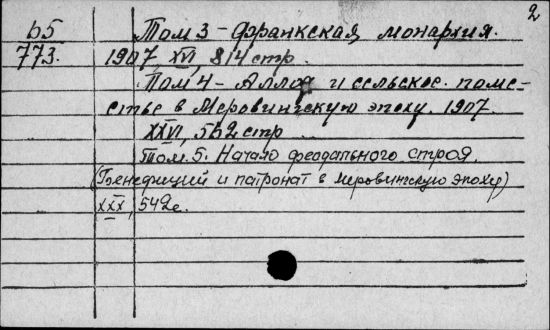 2
Б5 Том 3 - Франкская монархия.
773. 1907, XVI, 814 стр.
Том 4 - Аллод и сельское поме-
стье в Меровингскую эпоху. 1907.
XXVI, 542 стр
Том. 5. Начало феодального строя.
(Бенефиций и патронат в меровинскую эпоху)
XXX, 542 с.